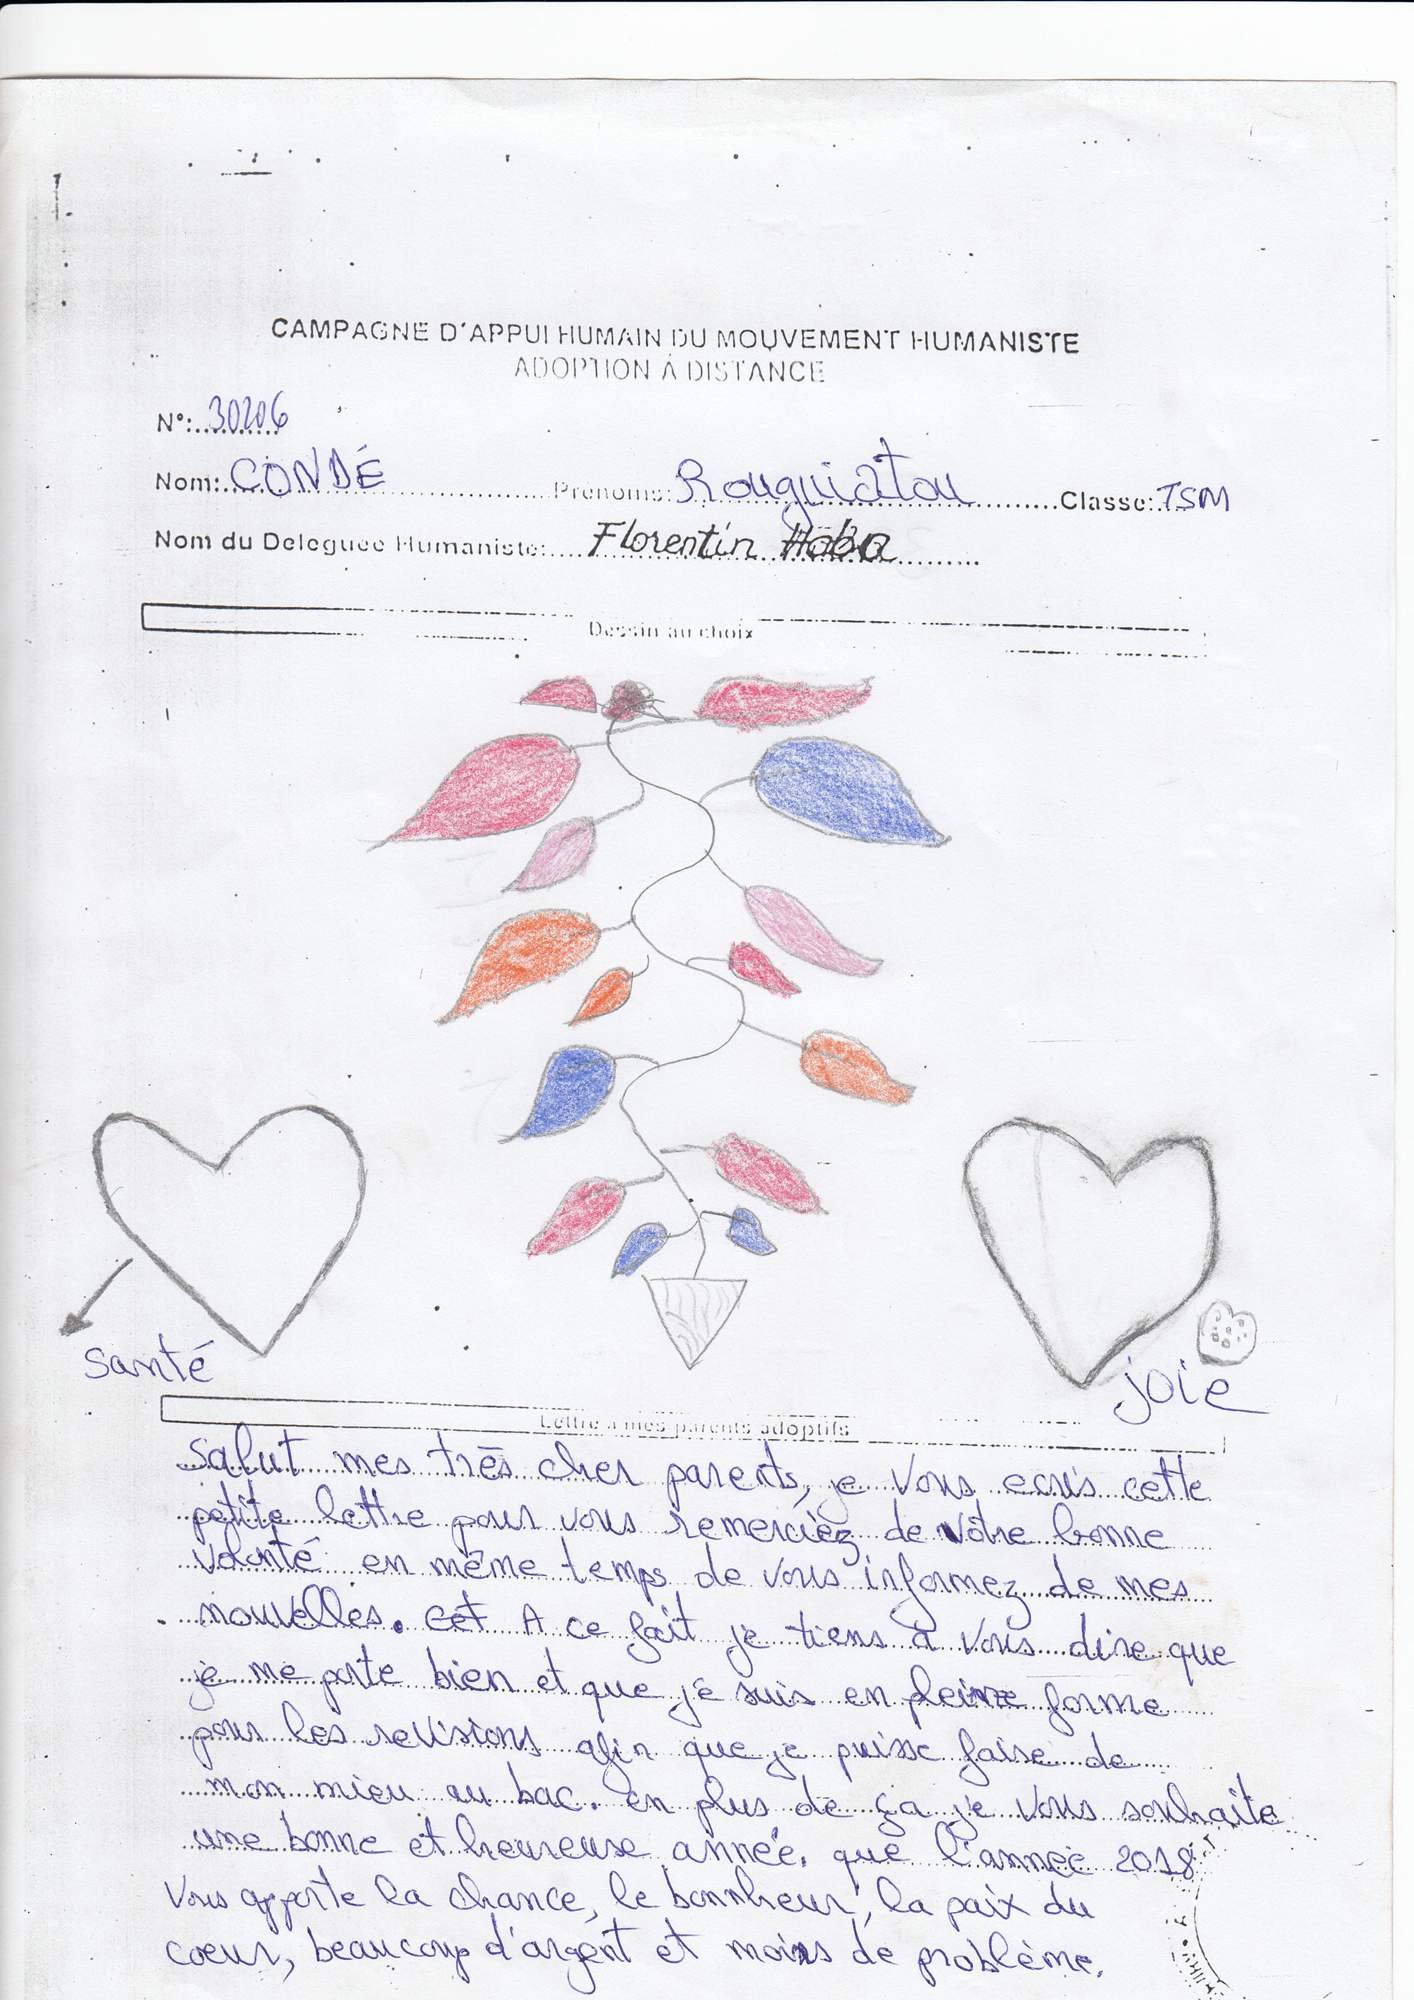 CAMPAGNE D'APPUI HUMAIN DU MOUVEMENT HUMANISTE
ADOPTION À DISTANCE
N°: 30206
Nom: CONDÉ Prénoms: Rouguiatou Classe: TSM
Nom du Deleguée Humaniste: Florentin Haba
Dessin au choix
santé
joie
Lettre à mes parents adoptifs
Salut mes très cher parents, je vous ecris cette
petite lettre pour vous remerciez de votre bonne
volonté en même temps de vous informez de mes
nouvelles. Cet A ce fait je tiens à vous dire que
je me porte bien et que je suis en pleine forme
pour les revisions afin que je puisse faire de
mon mieu au bac. en plus de ça je vous souhaite
une bonne et heureuse année. que l'année 2018
vous apporte la chance, le bonnheur, la paix du
coeur, beaucoup d'argent et moins de problème.